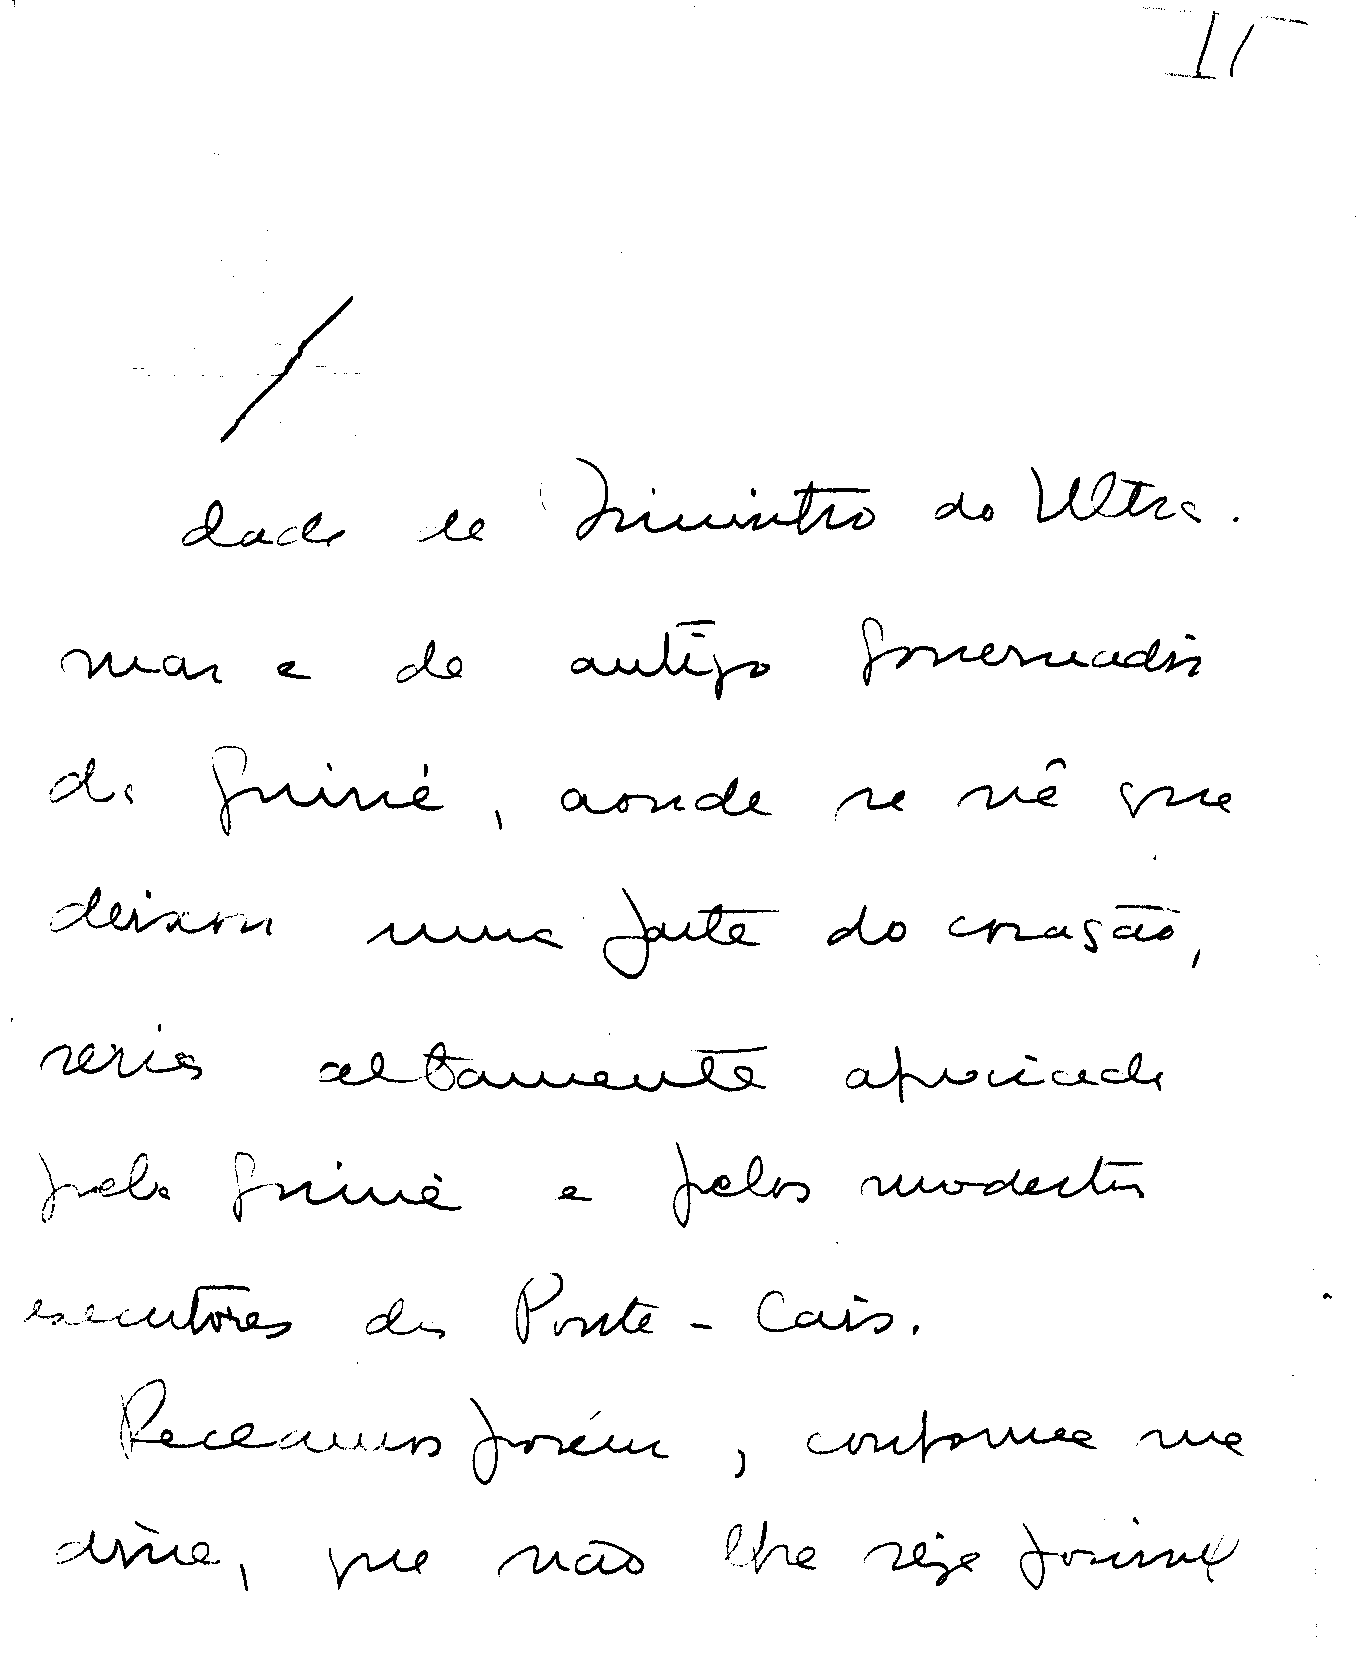 II
dade de Ministro do Ultra-
mar e de antigo Governador
da Guiné, aonde se vê que
deixou uma parte do coração,
seria altamente apreciada
pela Guiné e pelos modestos
executores da Ponte-Cais.
Receamos porém, conforme me
disse, que não lhe seja possivel